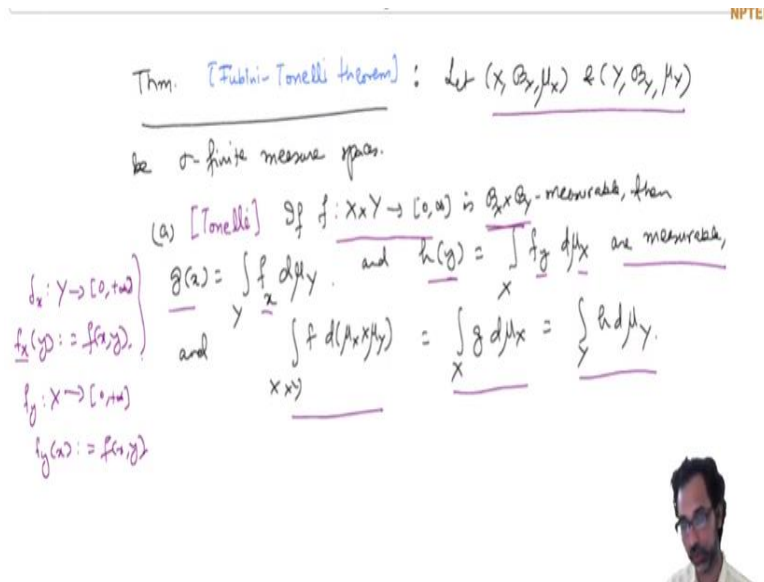 NPTEL
Thm. [Fubini-Tonelli theorem] : Let (X, 𝓑_X, μ_X) & (Y, 𝓑_Y, μ_Y)
be σ-finite measure spaces.
(a) [Tonelli] If f : X×Y → [0, ∞] is 𝓑_X×𝓑_Y-measurable, then
g(x) = ∫_Y f_x dμ_Y. and h(y) = ∫_X f_y dμ_X are measurable,
and ∫_{X×Y} f d(μ_X×μ_Y) = ∫_X g dμ_X = ∫_Y h dμ_Y.
f_x : Y → [0, +∞]
f_x(y) := f(x,y).
f_y : X → [0, +∞]
f_y(x) := f(x,y)